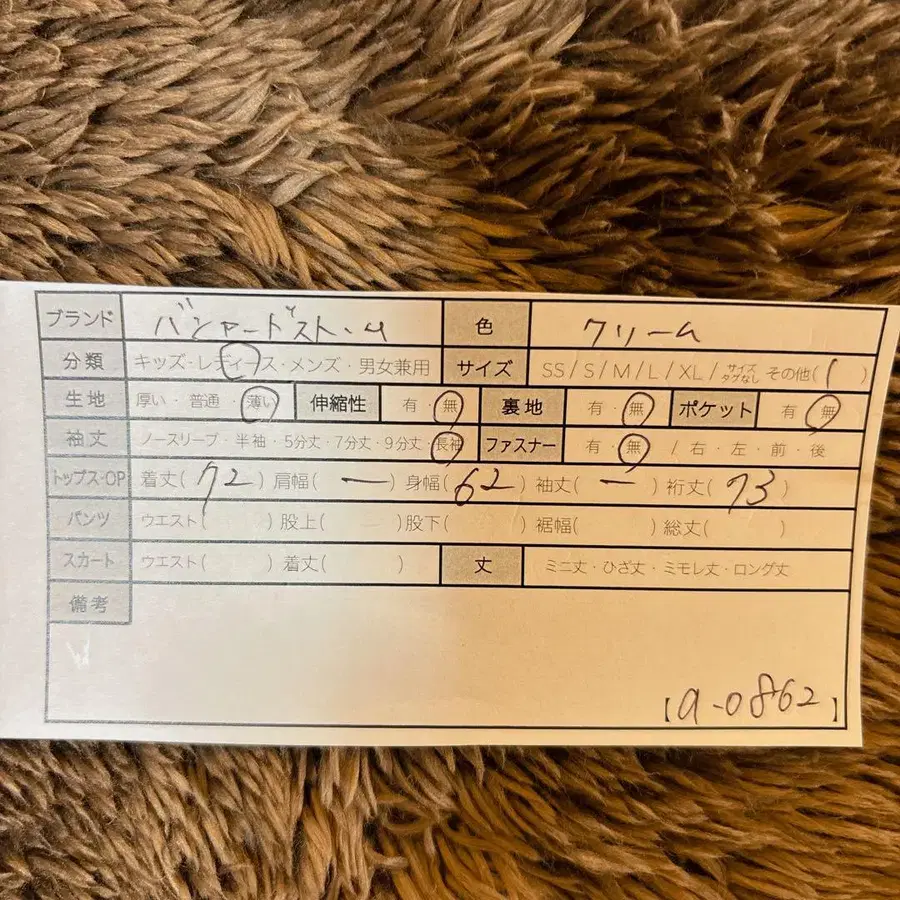 ブランド バシャードストーム 色 クリーム
分類 キッズ・レディース・メンズ・男女兼用 サイズ SS/S/M/L/XL/サイズタグなし その他(1)
生地 厚い・普通・薄い 伸縮性 有・無 裏地 有・無 ポケット 有・無
袖丈 ノースリーブ・半袖・5分丈・7分丈・9分丈・長袖 ファスナー 有・無 /右・左・前・後
トップス・OP 着丈(72)肩幅(ー)身幅(62)袖丈(ー)裄丈(73)
パンツ ウエスト( )股上( )股下( )裾幅( )総丈( )
スカート ウエスト( )着丈( ) 丈 ミニ丈・ひざ丈・ミモレ丈・ロング丈
備考
【a-0862】